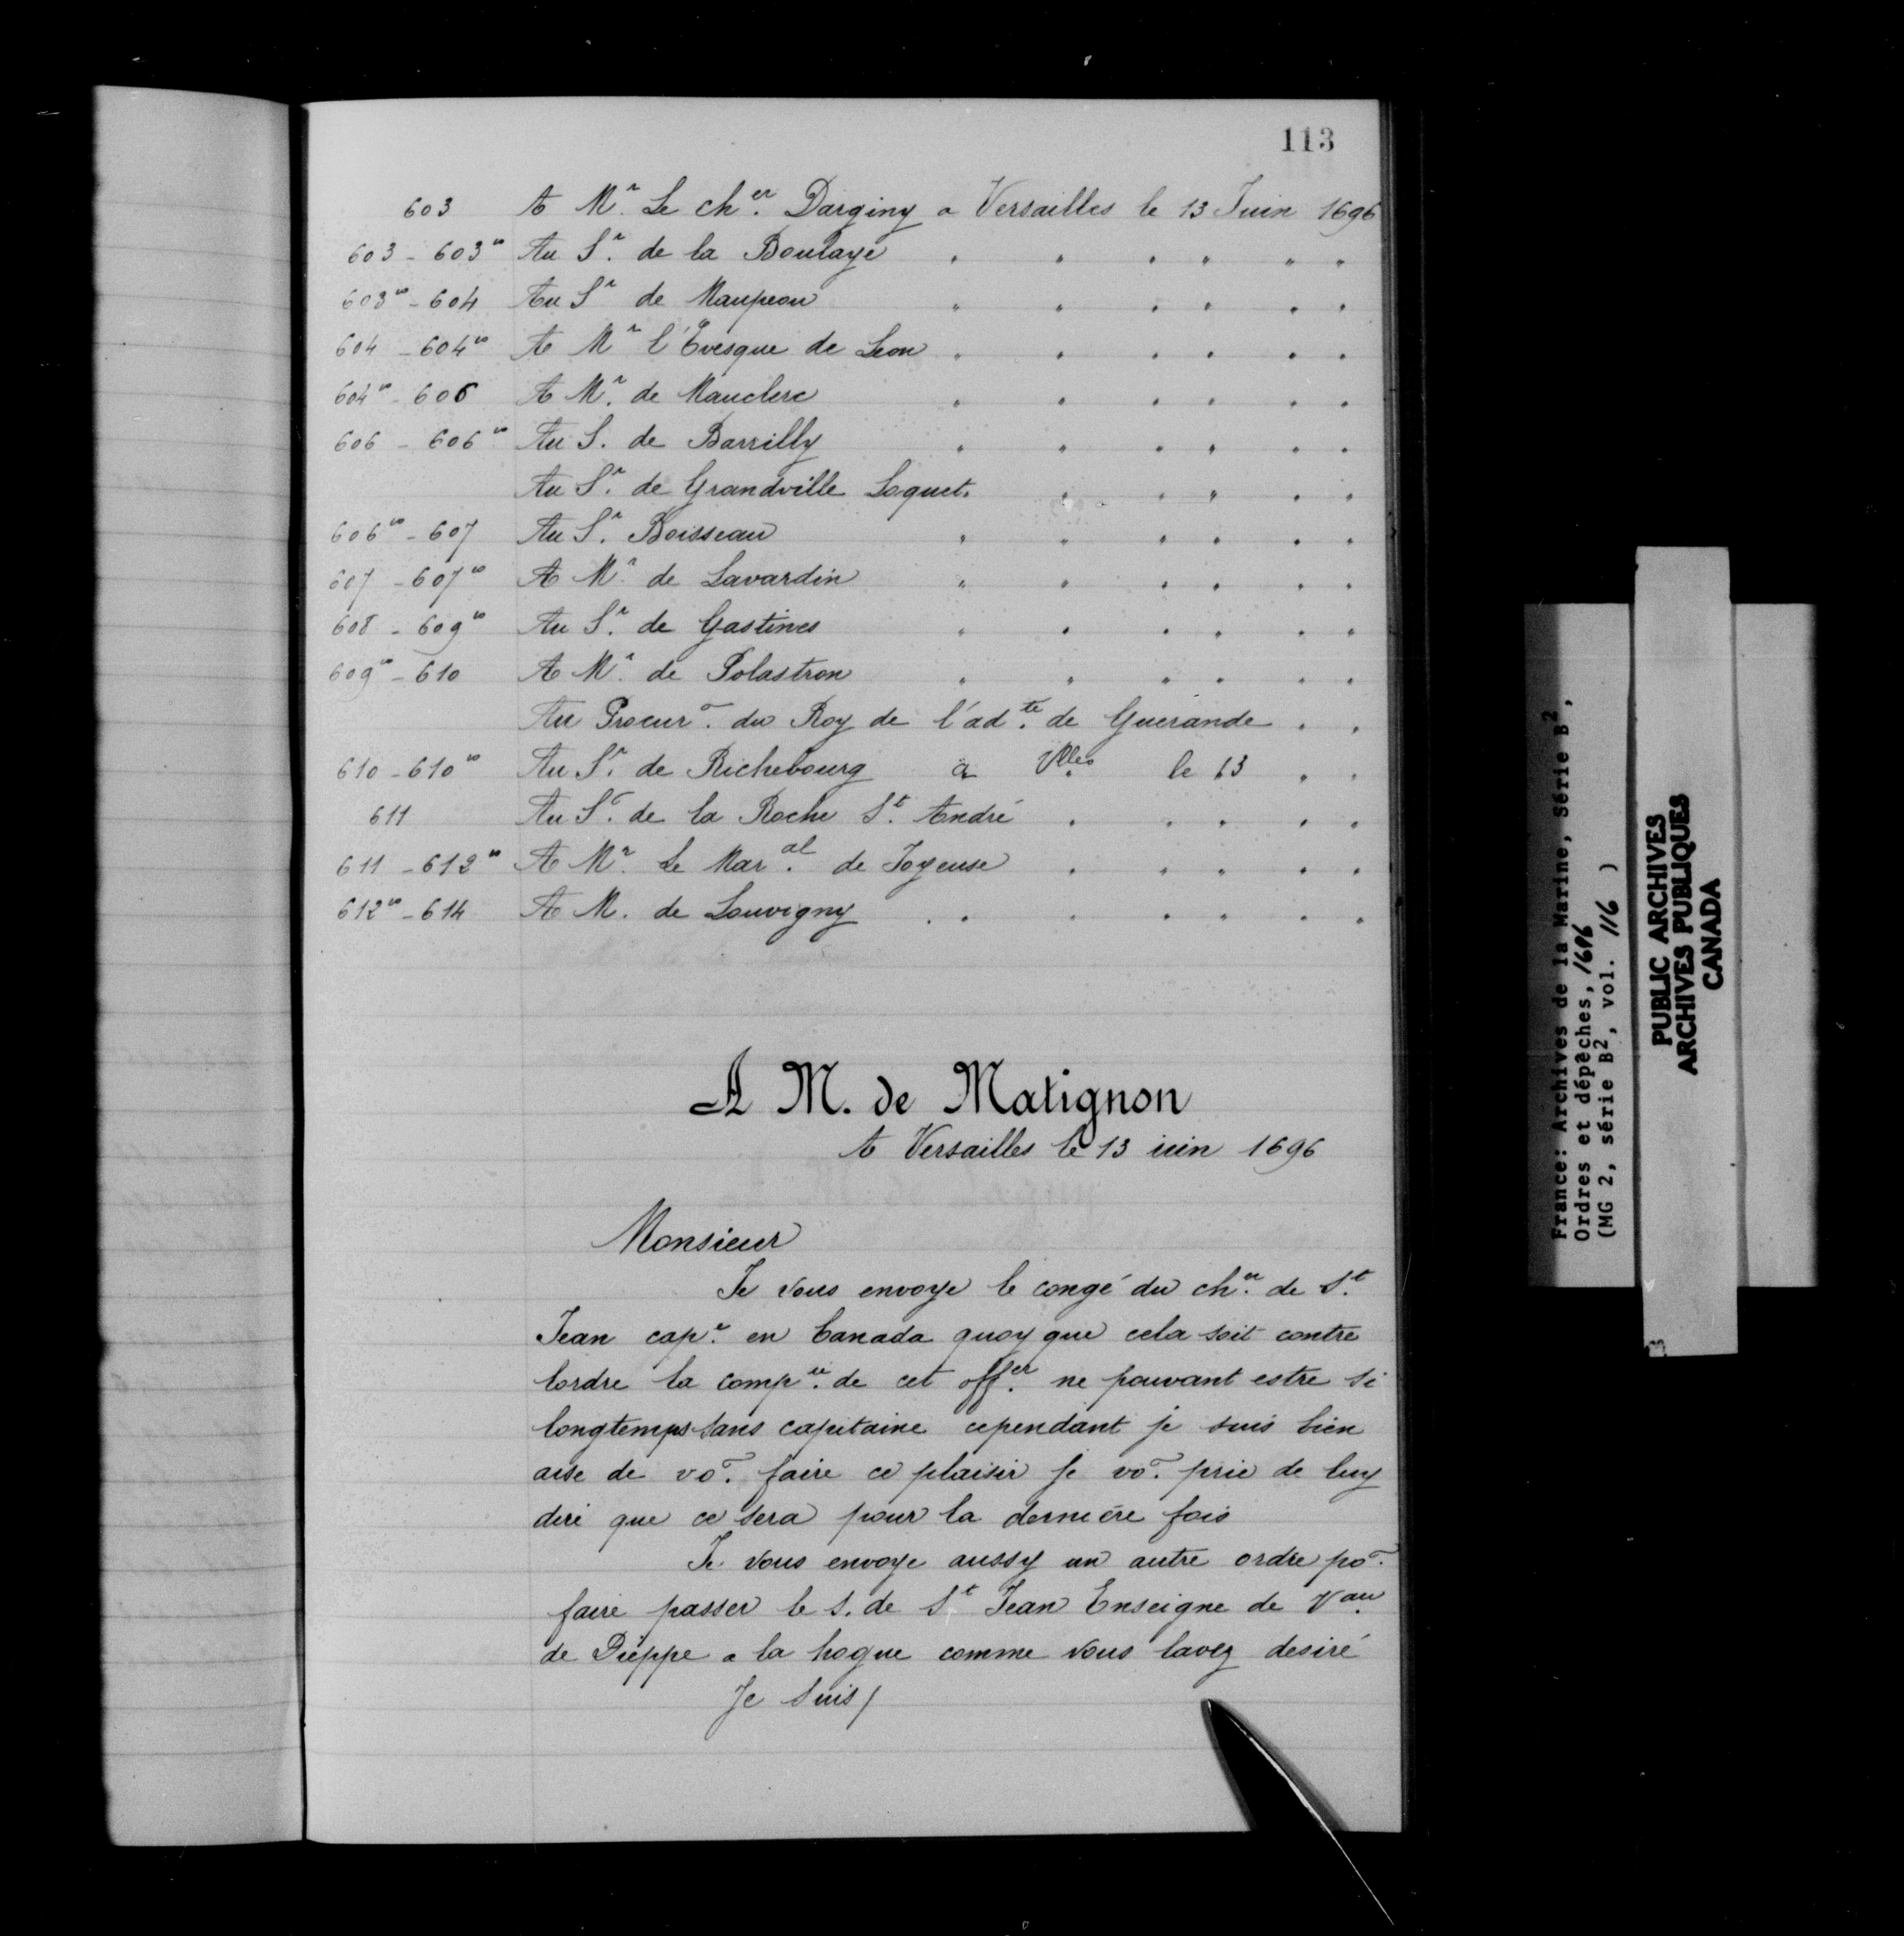 113
603 A Mr. Le cher. Darginy a Versailles le 13 Juin 1696
603 - 603vo Au Sr. de la Boulaye " " " " " "
603vo - 604 Au Sr de Maupeou " " " " " "
604 - 604vo A Mr l'Evesque de Leon " " " " " "
604vo - 606 A Mr. de Mauclerc " " " " " "
606 - 606vo Au S. de Barrilly " " " " " "
Au Sr. de Grandville Loquet. " " " " "
606vo - 607 Au Sr. Boisseau " " " " " "
607 - 607vo A Mr. de Lavardin " " " " " "
608 - 609vo Au Sr. de Gastines " " " " " "
609vo - 610 A Mr. de Polastron " " " " " "
Au Procur. du Roy de l'adte. de Guerande " "
610 - 610vo Au Sr. de Richebourg a Vlles le 13 " "
611 Au Sr. de la Roche St. André " " " " "
611 - 612vo A Mr. Le Maral. de Joyeuse " " " " "
612vo - 614 A M. de Louvigny " " " " " "
A M. de Matignon
A Versailles le 13 iuin 1696
Monsieur
Je vous envoye le congé du cher. de St.
Jean capr. en Canada quoy que cela soit contre
lordre la compie. de cet offer. ne pouvant estre si
longtemps sans capitaine cependant je suis bien
aise de vo. faire ce plaisir je vo. prie de luy
dire que ce sera pour la derniere fois
Je vous envoye aussy un autre ordre po.
faire passer le s. de St Jean Enseigne de Vau
de Dieppe a la hogue comme vous lavez desiré
Je suis /
France: Archives de la Marine, Série B2,
Ordres et dépêches, 1696
(MG 2, série B2, vol. 116 )
PUBLIC ARCHIVES
ARCHIVES PUBLIQUES
CANADA